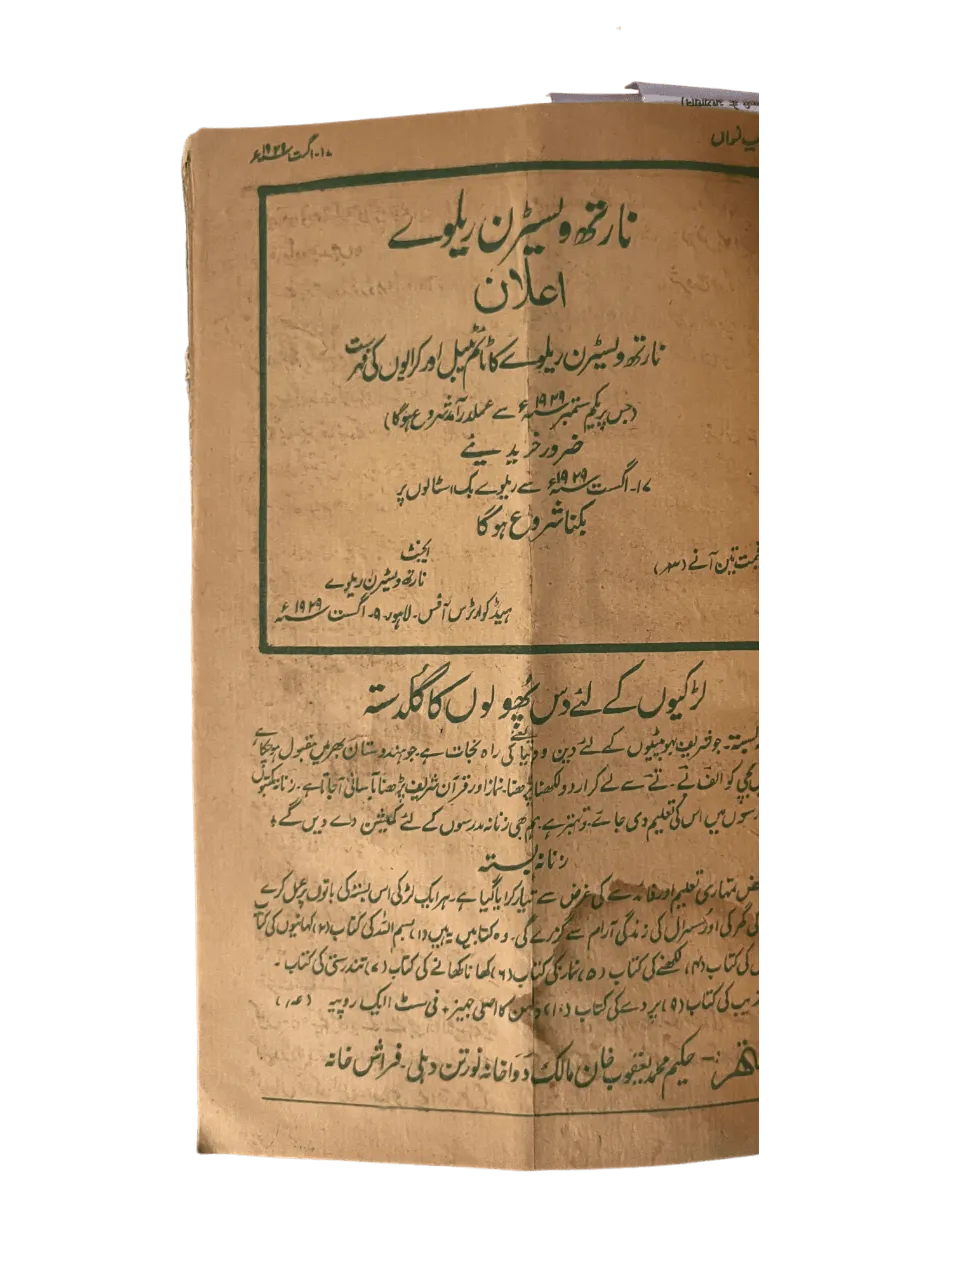 ۱۷۔ اگست ۱۹۲۹ء
نارتھ ویسٹرن ریلوے
اعلان
نارتھ ویسٹرن ریلوے کا ٹائم ٹیبل اور کرایوں کی فہرست
(جس پر یکم ستمبر ۱۹۲۹ء سے عملدرآمد شروع ہوگا)
ضرور خریدیئے
۱۷۔ اگست ۱۹۲۹ء سے ریلوے بک اسٹالوں پر
بکنا شروع ہوگا
قیمت تین آنے (۳ر)
ایجنٹ
نارتھ ویسٹرن ریلوے
ہیڈکوارٹرس آفس۔ لاہور۔ ۹۔ اگست ۱۹۲۹ء
لڑکیوں کے لئے دس پھولوں کا گلدستہ
بستہ۔ جو شریف بہو بیٹیوں کے لئے دین و دنیا کی راہ نجات ہے جو ہندوستان بھر میں مقبول ہوچکا ہے
بچی کو الف بے۔ تے سے لے کر اردو لکھنا پڑھنا۔ نماز اور قرآن شریف پڑھنا بآسانی آجاتا ہے۔ زنانہ
اس کی تعلیم دی جائے تو بہتر ہے ہم جی زنانہ مدرسوں کے لئے کمیشن دے دیں گے؛
زنانہ بستہ
تمہاری تعلیم اور فائدے کی غرض سے تیار کرایا گیا ہے۔ ہر ایک لڑکی اس بستہ کی باتوں پر عمل کرے
کی گھر کی اور سسرال کی زندگی آرام سے گزرے گی۔ وہ کتابیں یہ ہیں (۱) بسم اللہ کی کتاب (۲) کہانیوں کی کتاب
کی کتاب (۴) لکھنے کی کتاب (۵) نماز کی کتاب (۶) کھانا کھانے کی کتاب (۷) تندرستی کی کتاب۔
کی کتاب (۹) پردے کی کتاب (۱۰) دلہن کا اصلی جہیز + فی سٹ ایک روپیہ
حکیم محمد یعقوب خان مالک دواخانہ نورتن دہلی۔ فراش خانہ